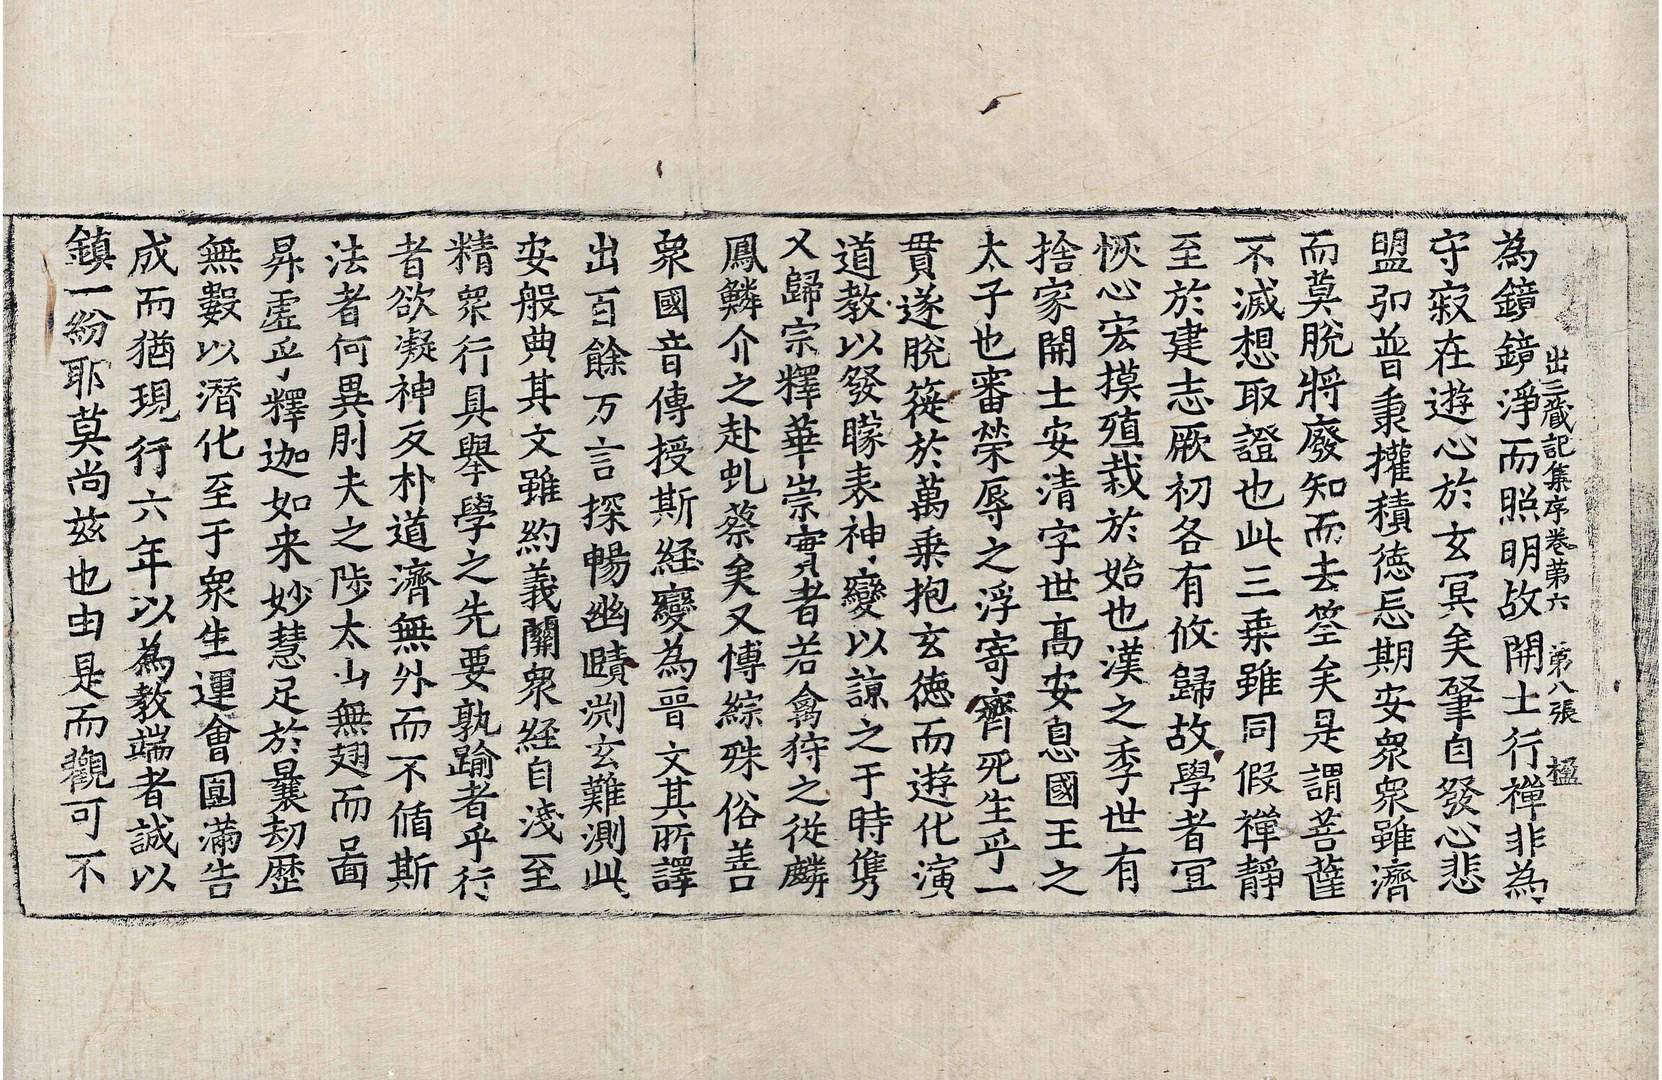 出三藏記集序卷第六　第八張　楹
為鏡鏡淨而照明故開士行禪非為
守寂在遊心於玄冥矣肇自發心悲
盟弘普秉權積德忘期安衆衆雖濟
而莫脫將廢知而去筌矣是謂菩薩
不滅想取證也此三乗雖同假禪靜
至於建志厥初各有攸歸故學者宜
恢心宏摸殖栽於始也漢之季世有
捨家開士安清字世髙安息國王之
太子也審榮辱之浮寄齊死生乎一
貫遂脫屣於萬乗抱玄德而遊化演
道教以發矇表神變以諒之于時儁
乂歸宗釋華崇實者若禽狩之從麟
鳳鱗介之赴虬蔡矣又博綜殊俗善
衆國音傳授斯經變為晉文其所譯
出百餘万言探暢幽賾渕玄難測此
安般典其文雖約義關衆經自淺至
精衆行具舉學之先要孰踰者乎行
者欲凝神反朴道濟無外而不循斯
法者何異刖夫之陟太山無翅而啚
昇虛乎釋迦如来妙慧足於曩劫歷
無數以潛化至于衆生運會圓滿告
成而猶現行六年以為教端者誠以
鎮一紛耶莫尚茲也由是而觀可不